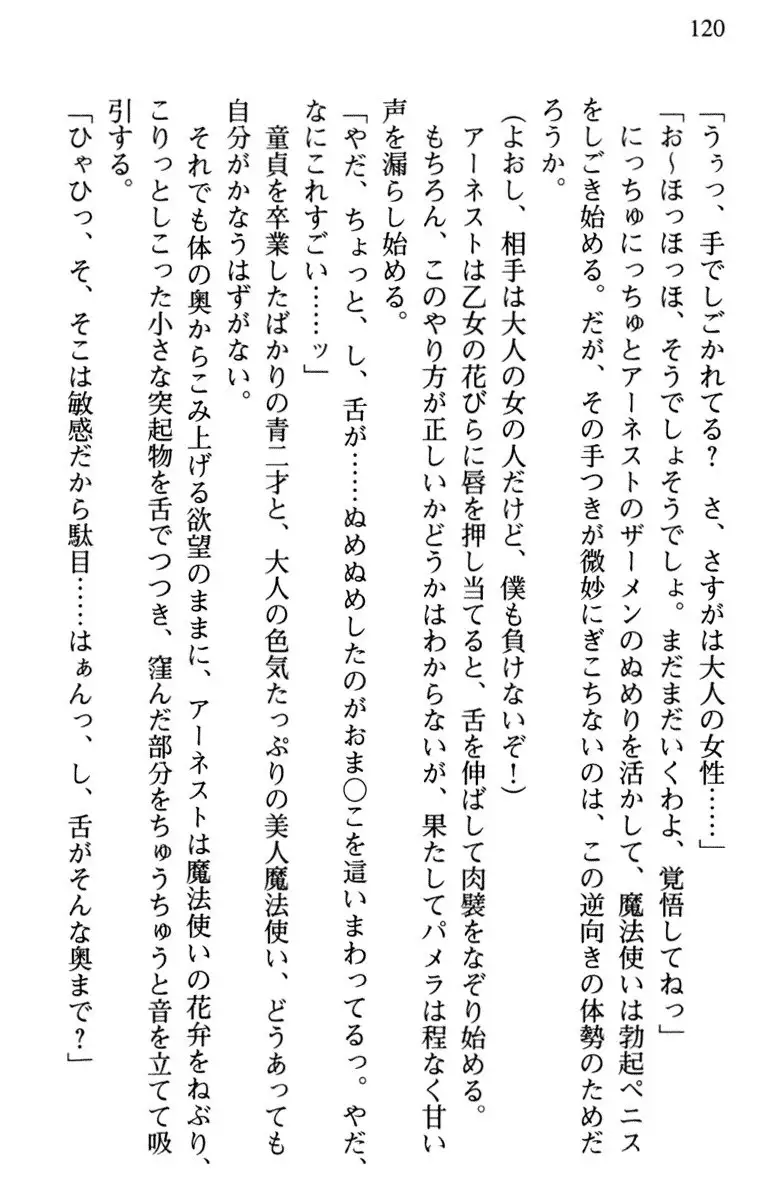 120
「うぅっ、手でしごかれてる？　さ、さすがは大人の女性……」
「お～ほっほっほ、そうでしょそうでしょ。まだまだいくわよ、覚悟してねっ」
にっちゅにっちゅとアーネストのザーメンのぬめりを活かして、魔法使いは勃起ペニス
をしごき始める。だが、その手つきが微妙にぎこちないのは、この逆向きの体勢のためだ
ろうか。
（よおし、相手は大人の女の人だけど、僕も負けないぞ！）
アーネストは乙女の花びらに唇を押し当てると、舌を伸ばして肉襞をなぞり始める。
もちろん、このやり方が正しいかどうかはわからないが、果たしてパメラは程なく甘い
声を漏らし始める。
「やだ、ちょっと、し、舌が……ぬめぬめしたのがおま〇こを這いまわってるっ。やだ、
なにこれすごい……ッ」
童貞を卒業したばかりの青二才と、大人の色気たっぷりの美人魔法使い、どうあっても
自分がかなうはずがない。
それでも体の奥からこみ上げる欲望のままに、アーネストは魔法使いの花弁をねぶり、
こりっとしこった小さな突起物を舌でつつき、窪んだ部分をちゅうちゅうと音を立てて吸
引する。
「ひゃひっ、そ、そこは敏感だから駄目……はぁんっ、し、舌がそんな奥まで？」